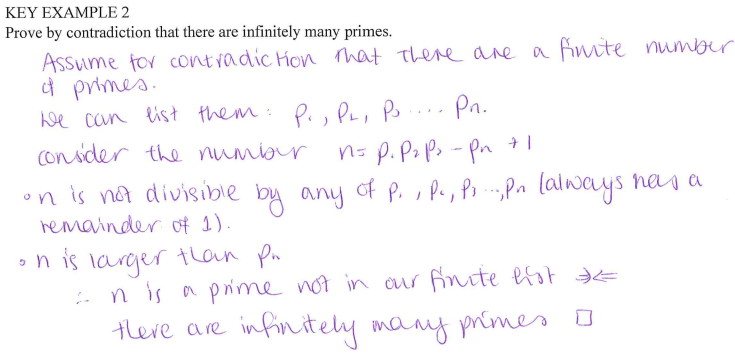 KEY EXAMPLE 2
Prove by contradiction that there are infinitely many primes.
Assume for contradiction that there are a finite number
of primes.
We can list them : P₁, P₂, P₃ .... Pn.
consider the number n = P₁P₂P₃ - Pn + 1
• n is not divisible by any of P₁, P₂, P₃ ..., Pn (always has a
remainder of 1).
• n is larger than Pn
∴ n is a prime not in our finite list ⇒⇐
there are infinitely many primes □